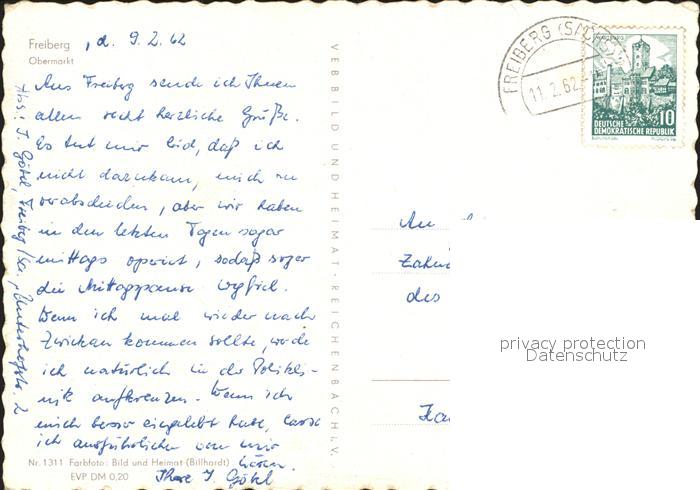 Freiberg , d. 9.2.62
Obermarkt
Aus Freiberg sende ich Ihnen
allen recht herzliche Grüße.
Es tut mir leid, daß ich
nicht dazukam, mich zu
verabschieden, aber wir haben
in den letzten Tagen sogar
mittags operiert, sodaß sogar
die Mittagspause wegfiel.
Wenn ich mal wieder nach
Zwickau kommen sollte, werde
ich natürlich in der Polikli-
nik aufkreuzen. Wenn ich
mich besser eingelebt habe, lasse
ich ausführlicher von mir
hören.
Ihre J. Göbel
Abs.: J. Göbel, Freiberg/Sa., Unterhofstr. 2
Nr. 1311 Farbfoto: Bild und Heimat (Billhardt)
EVP DM 0,20
VEB BILD UND HEIMAT · REICHENBACH I. V.
FREIBERG (SACHS)
11.2.62
WARTBURG
10
DEUTSCHE
DEMOKRATISCHE REPUBLIK
An
des
privacy protection
Datenschutz